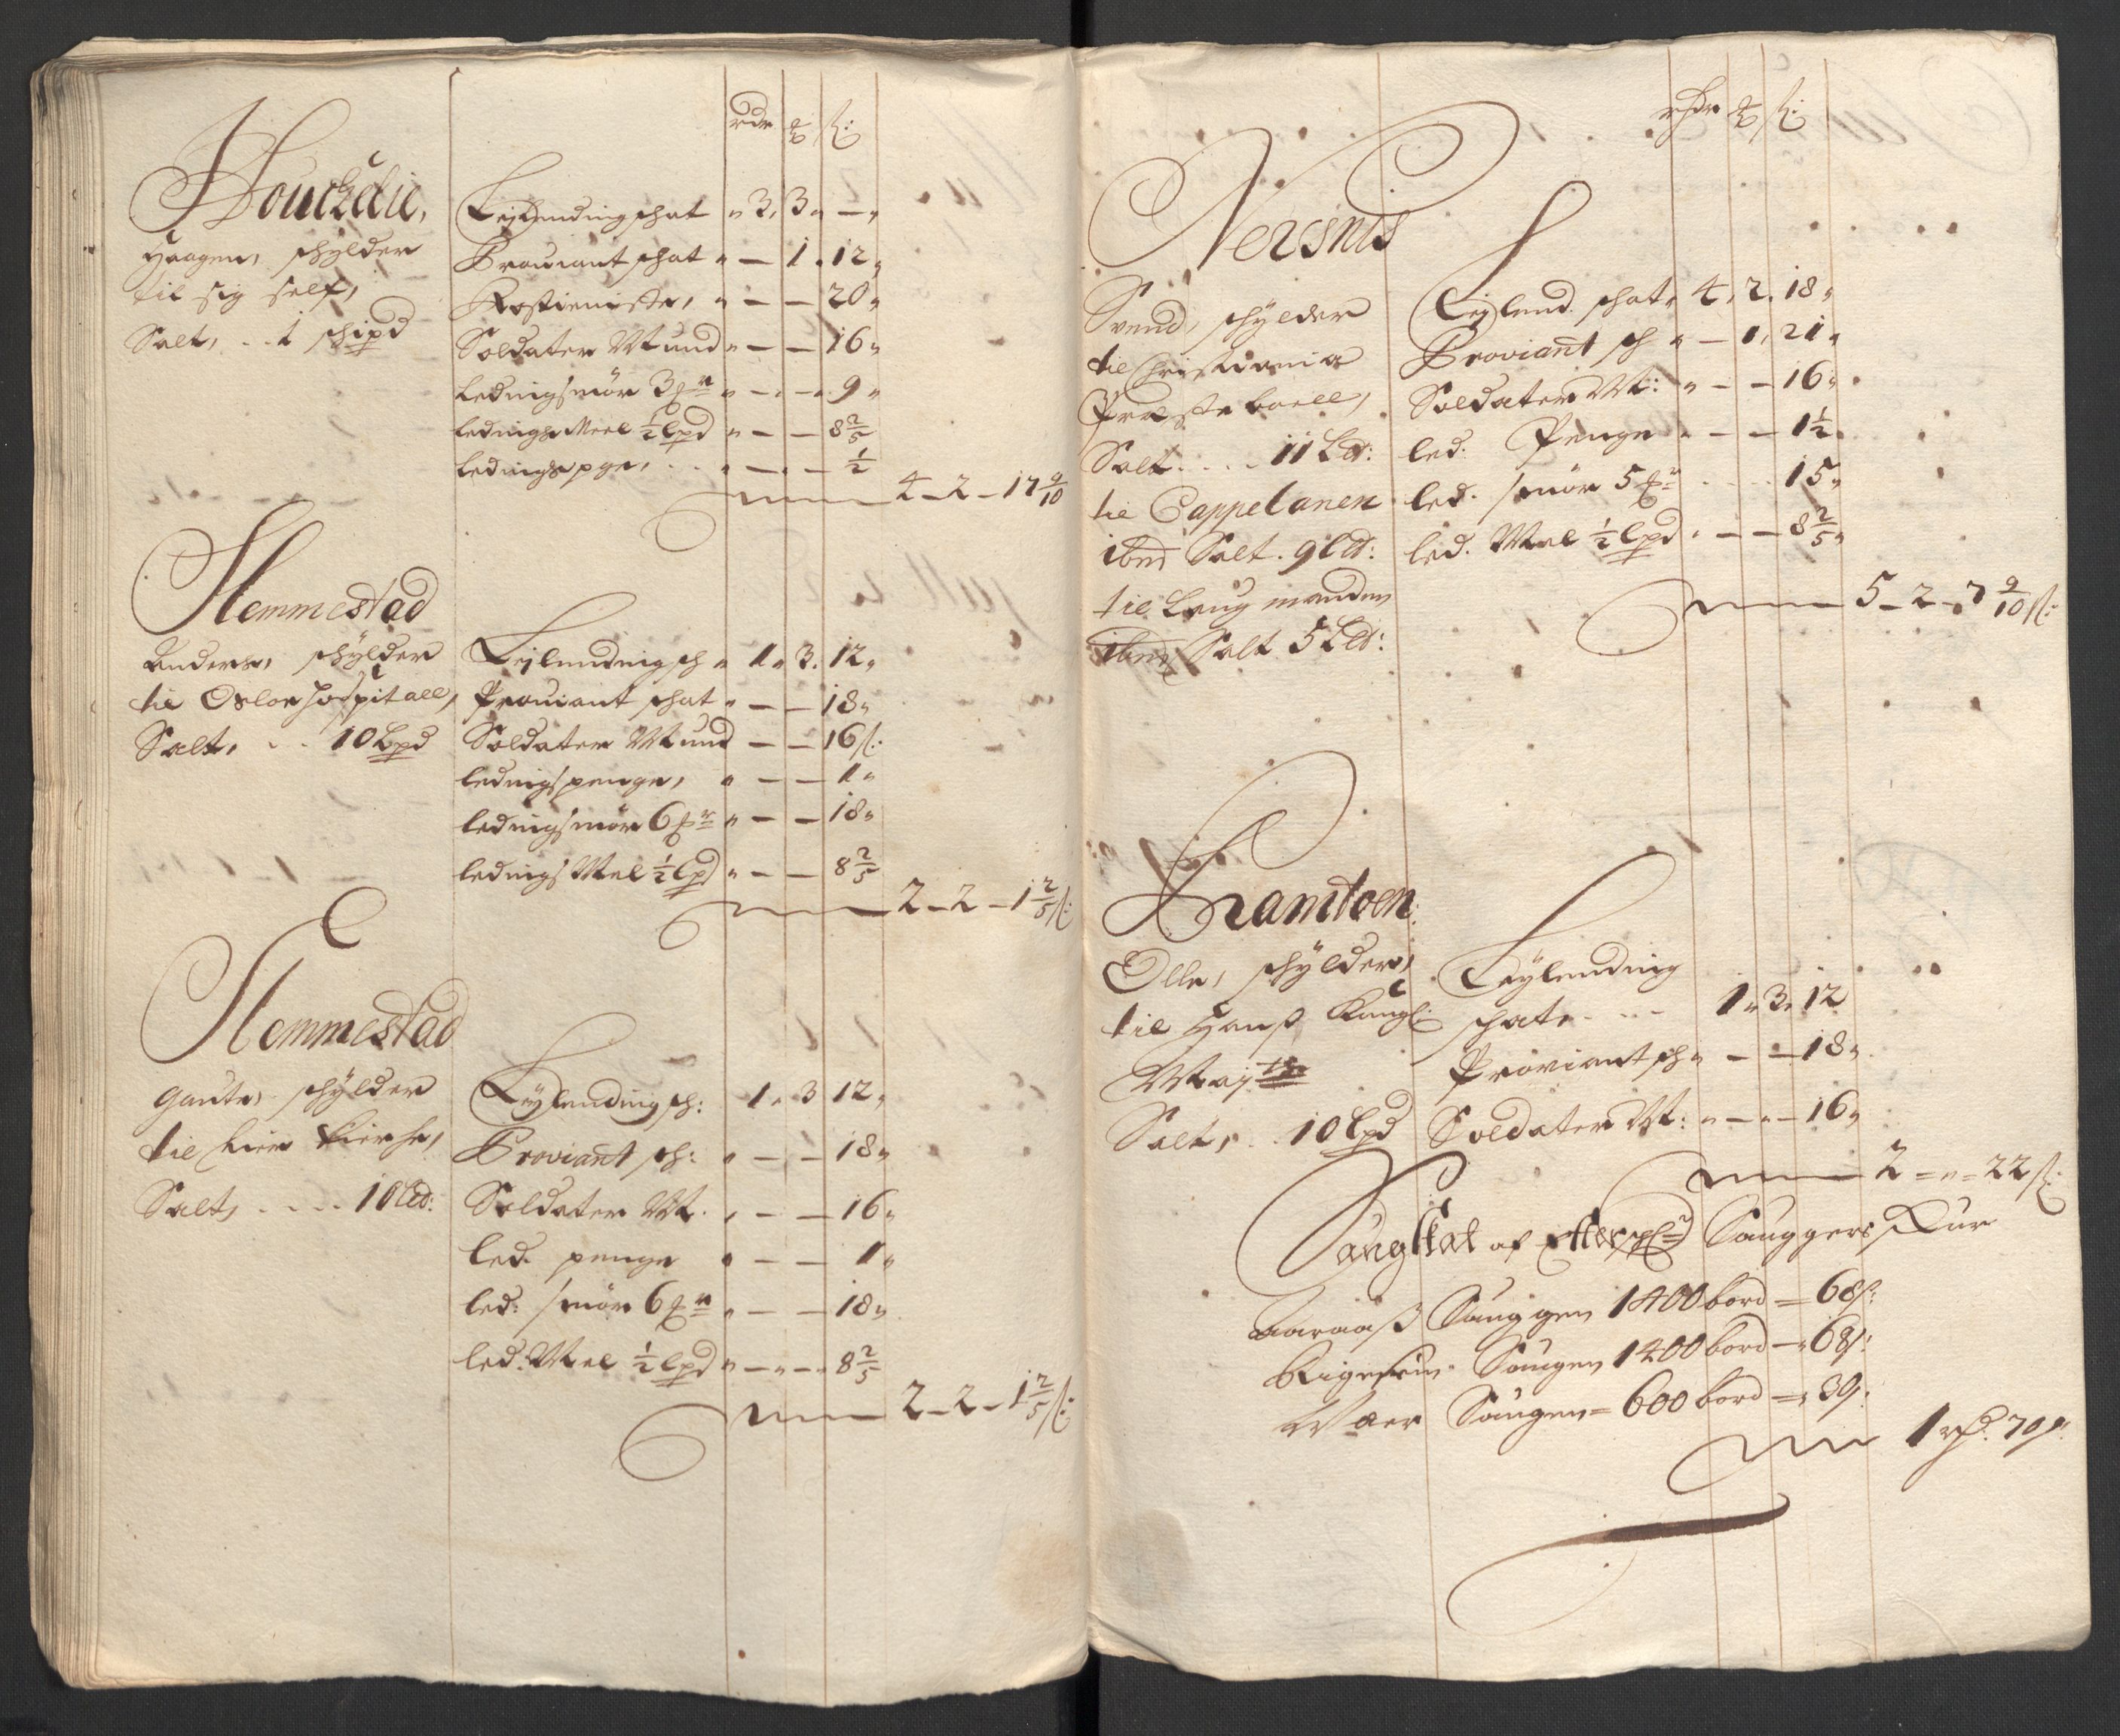 rdr ß:
Houchelie,
Haagen, schylder
til sig self,
Salt, . . 1 schipd
Leylending schat " 3, 3 " — "
Proviant schat " — 1 . 12 "
Rostieniste, " — — 20 "
Soldater Mund " — — 16 "
ledingsmör 3 " — " — " 9 "
ledings Meel ½ Lpd " — — 8 2/5
ledingspge, . . " — " — ½
4 – 2 – 17 9/10
Hemmestad
Anders, schylder
til Osloe Hospitall,
Salt, . . 10 Lpd
Leylending sch " 1 " 3 . 12 "
Proviant schat " — — 18 "
Soldater Mund — — 16 ß:
ledingspenge, " — — 1 "
ledingsmör 6 " — — 18 "
ledings Mel ½ Lpd " — — 8 2/5
2 – 2 – 1 2/5 ß:
Hemmestad
Gaute, schylder
til Lier Kierche,
Salt, . . . . 10 Ld:
Leylending sch: 1 " 3 12 "
Proviant sch: " — — 18 "
Soldater M. " — — 16 "
led. penge " — — 1 "
led: smör 6 " — — 18 "
led. Mel ½ Lpd " — " — " 8 2/5
2 – 2 – 1 2/5 ß:
rhdr ß:
Nersnis
Svend, schylder
til Christiania
Præste boell,
Salt . . . . 11 Ld:
til Cappelanen
ibm Salt . 9 Ld:
til Laugmanden
ibm Salt 5 Ld:
Leylend. schat " 4 , 2 . 18 "
Proviant sch " — 1 , 21 "
Soldater M: " — — 16 "
led. Penge " — — 1½ "
led. smör 5 . . . . 15 "
led. Mel ½ Lpd " — — 8 2/5 "
5 – 2 – 7 9/10 ß:
Framtoen
Olle, schylder,
til Hans Kongl:
Maj
Salt, . . 10 Lpd
Leylending
schat " . . . 1 " 3 " 12
Proviant sch " — — 18 "
Soldater M: " — " — 16 "
2 = " = 22 ß:
Saugskat af Sauggers
Aaraas Sauggen 1400 bord = 68 ß:
Saugen 1400 bord — " 68 ß:
Saugen = 600 bord = " 30 ß:
1 rd. 70 ß.